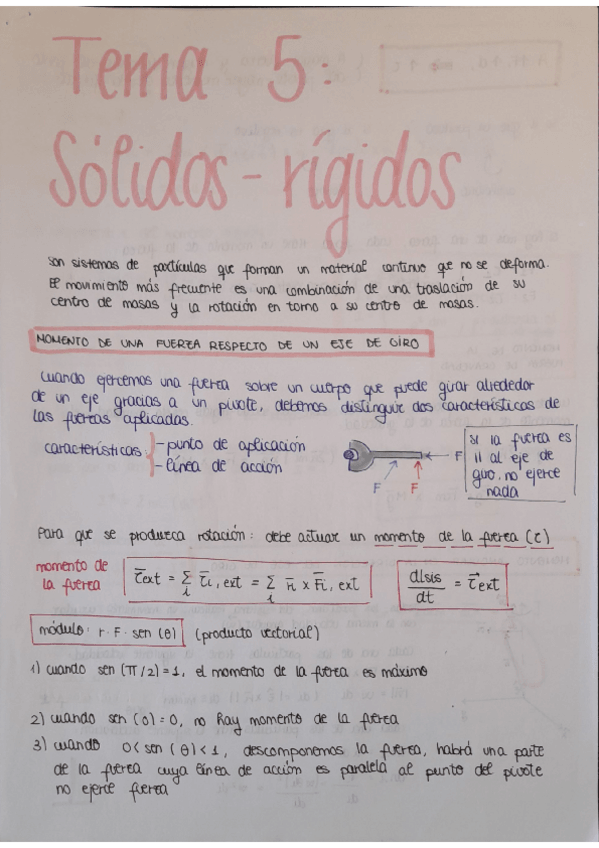 Tema 5:
Sólidos-rígidos
Son sistemas de partículas que forman un material continuo que no se deforma.
El movimiento más frecuente es una combinación de una traslación de su
centro de masas y la rotación en torno a su centro de masas.
MOMENTO DE UNA FUERZA RESPECTO DE UN EJE DE GIRO
Cuando ejercemos una fuerza sobre un cuerpo que puede girar alrededor
de un eje gracias a un pivote, debemos distinguir dos características de
las fuerzas aplicadas.
características
-punto de aplicación
-línea de acción
F
F
F
Si la fuerza es
|| al eje de
giro, no ejerce
nada
Para que se produzca rotación: debe actuar un momento de la fuerza (τ)
momento de
la fuerza
τ̄ext = Σi τ̄i, ext = Σi r̄i x F̄i, ext
dLsis/dt = τ⃗ext
módulo: r · F · sen (θ) (producto vectorial)
1) cuando sen (π/2) = 1, el momento de la fuerza es máximo
2) cuando sen (0) = 0, no hay momento de la fuerza
3) cuando 0 < sen (θ) < 1, descomponemos la fuerza, habrá una parte
de la fuerza cuya línea de acción es paralela al punto del pivote
no ejerce fuerza